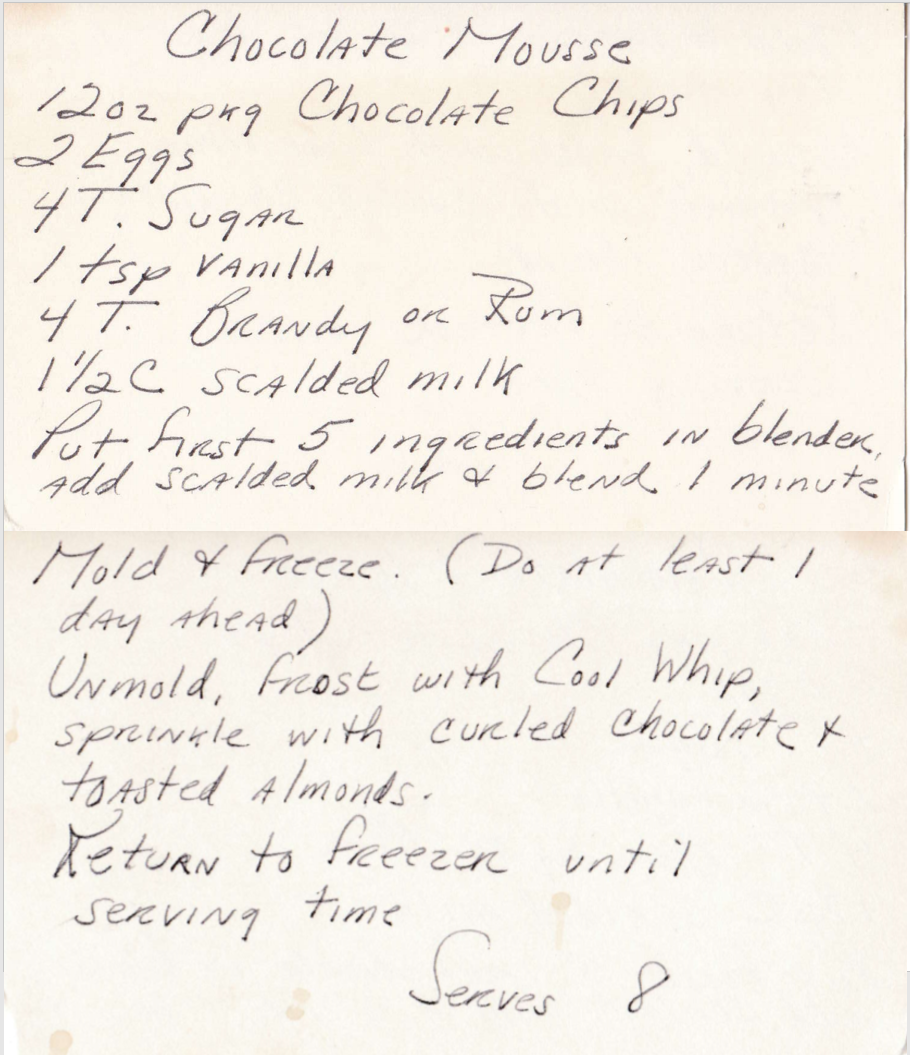 Chocolate Mousse
12oz pkg Chocolate Chips
2 Eggs
4 T. Sugar
1 tsp vanilla
4 T. Brandy or Rum
1 1/2 C scalded milk
Put first 5 ingredients in blender,
add scalded milk & blend 1 minute
Mold & freeze. (Do at least 1
day ahead)
Unmold, frost with Cool Whip,
sprinkle with curled chocolate &
toasted almonds.
Return to freezer until
serving time
Serves 8